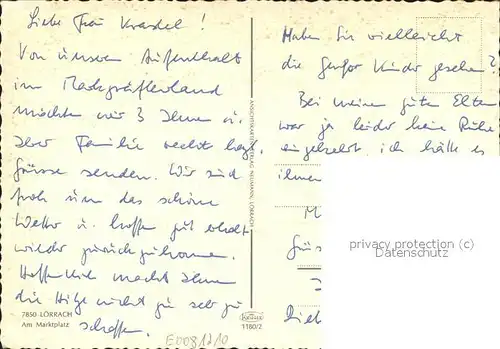 Liebe Frau Krastel!
Von unserem Aufenthalt
im Markgräflerland
möchten wir 3 Ihnen u.
Ihrer Familie recht herzl.
Grüsse senden. Wir sind
froh um das schöne
Wetter u. hoffen gut erholt
wieder zurückzukommen.
Hoffentlich macht Ihnen
die Hitze nicht zu sehr zu
schaffen.
7850 LÖRRACH
Am Marktplatz
E0081210
ANSICHTSKARTENVERLAG NEUMANN, LÖRRACH
1180/2
Haben Sie vielleicht
die Kinder gesehen?
Bei meinen guten Eltern
war ja leider keine Ruhe
eingekehrt, ich hätte es
ihnen
M
Grüs
Lieb
privacy protection (c)
Datenschutz